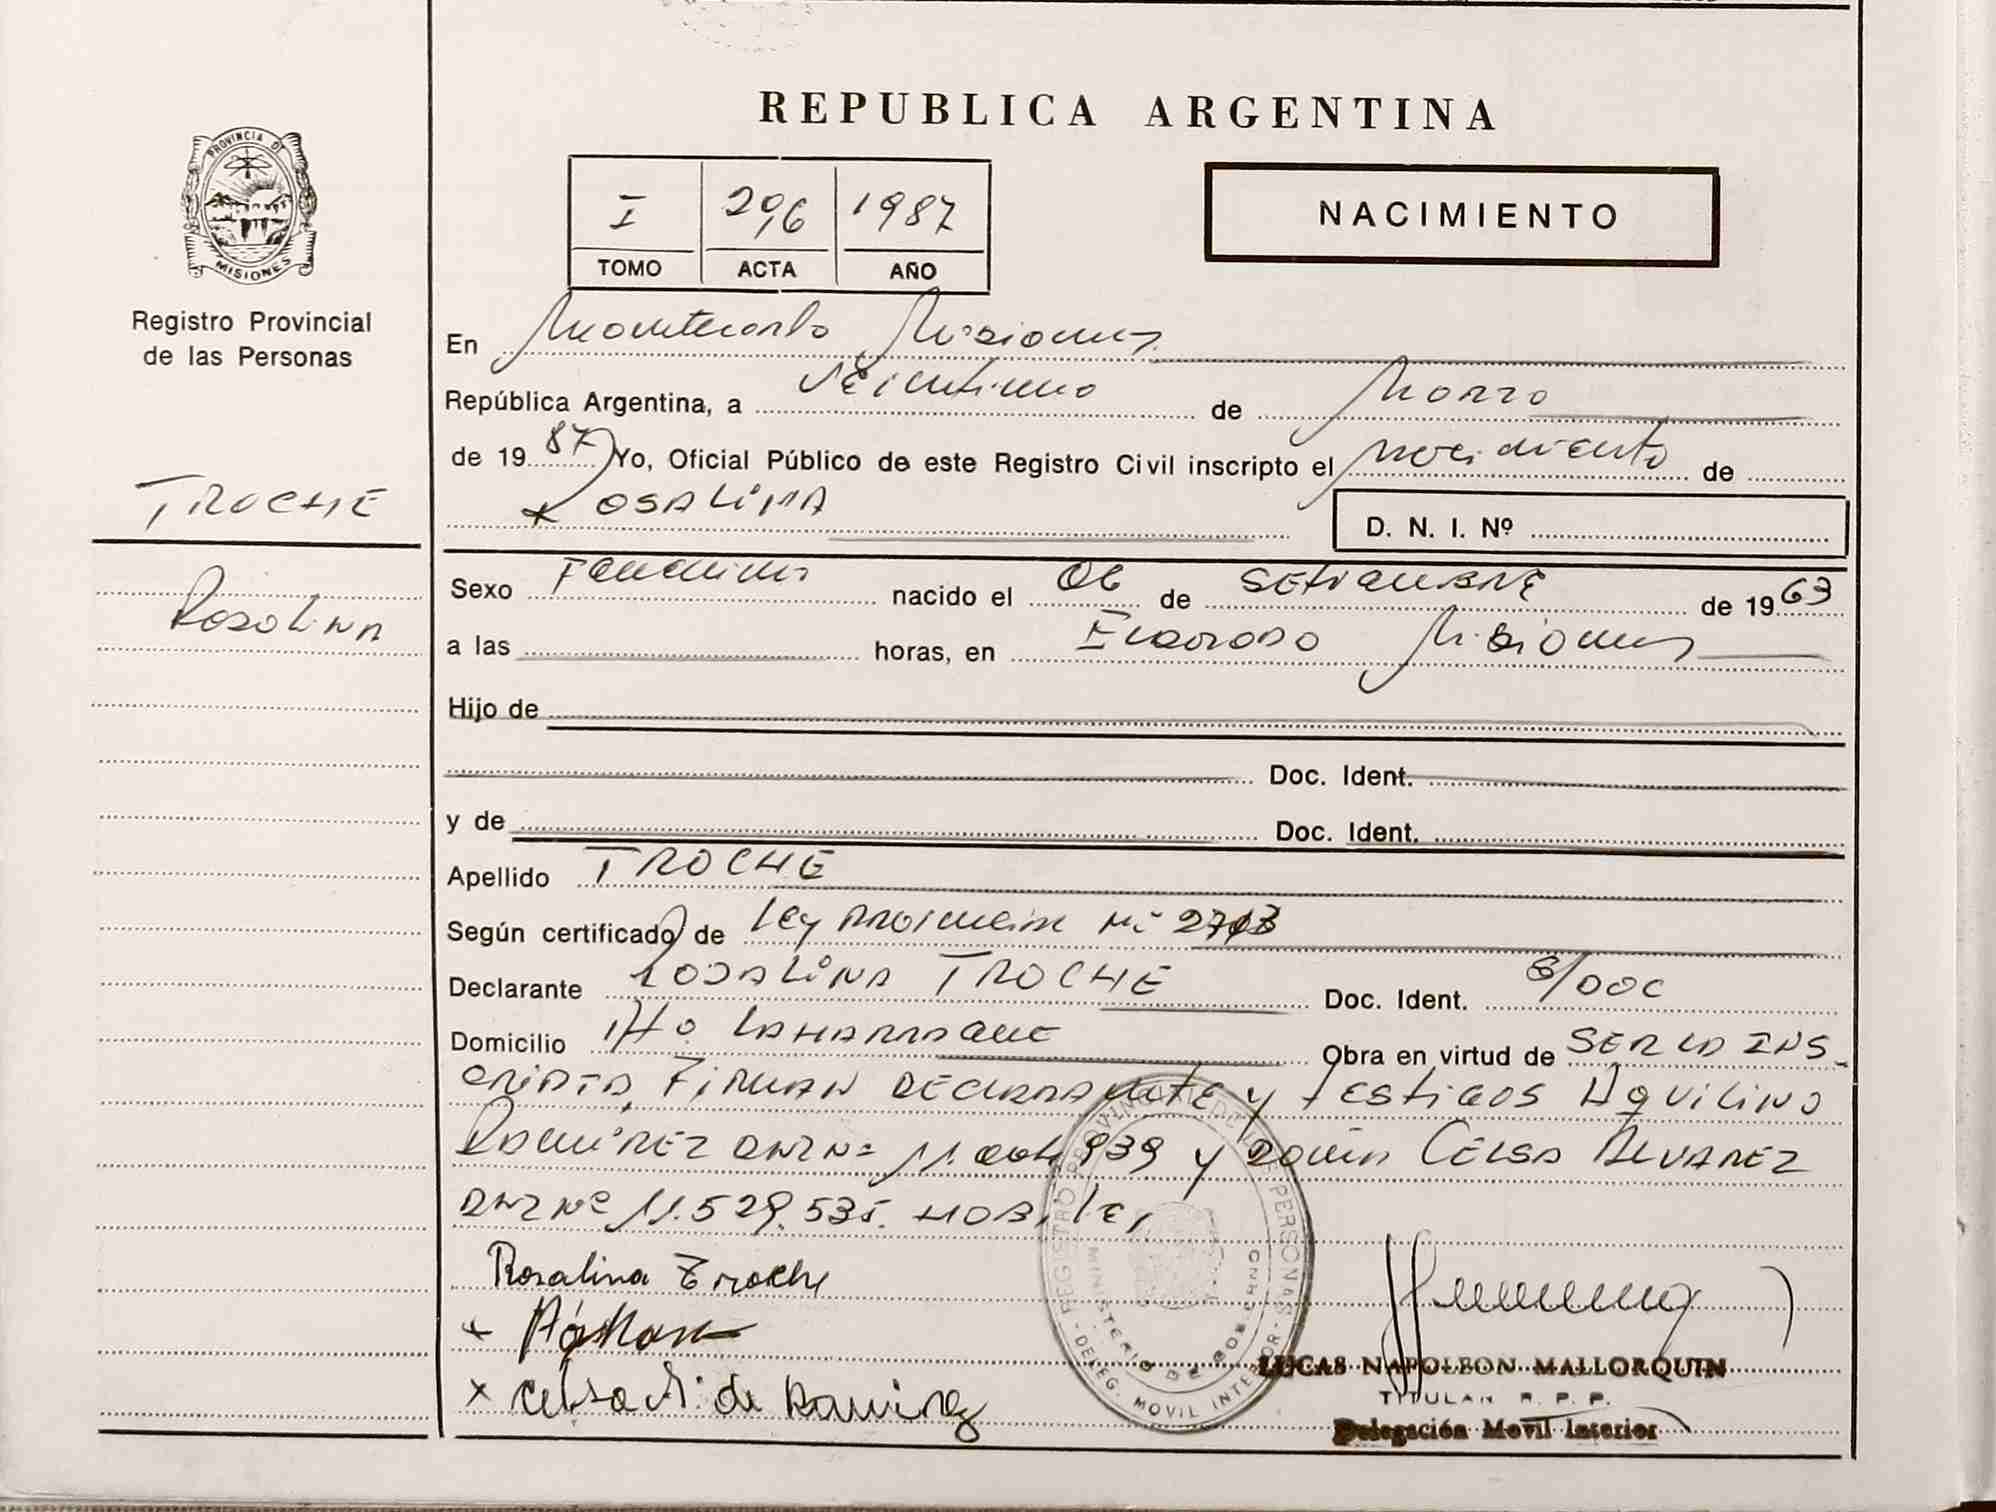 REPUBLICA ARGENTINA
PROVINCIA DE
MISIONES
Registro Provincial
de las Personas
I 296 1987
TOMO ACTA AÑO
NACIMIENTO
En Montecarlo Misiones
República Argentina, a Veintiuno de Marzo
de 1987 Yo, Oficial Público de este Registro Civil inscripto el nacimiento de
ROSALINA
D. N. I. Nº
TROCHE
Rosalina
Sexo Femenino nacido el 06 de SETIEMBRE de 1963
a las horas, en ELDORADO Misiones
Hijo de
Doc. Ident.
y de Doc. Ident.
Apellido TROCHE
Según certificado de Ley PROVINCIAL Nº 2713
Declarante ROSALINA TROCHE Doc. Ident. S/DOC
Domicilio LAHARRAGUE Obra en virtud de SER LA INS-
CRIPTA, FIRMAN DECLARANTE y TESTIGOS AQUILINO
RAMIREZ DNI Nº 11.004.939 y DOÑA CELSA ALVAREZ
DNI Nº 11.529.535.
Rosalina Troche
x
x Celsa A. de Ramirez
REGISTRO PROVINCIAL DE LAS PERSONAS
MINISTERIO DE GOBIERNO
DELEG. MOVIL INTERIOR
LUCAS NAPOLEON MALLORQUIN
TITULAR R. P. P.
Delegación Movil Interior